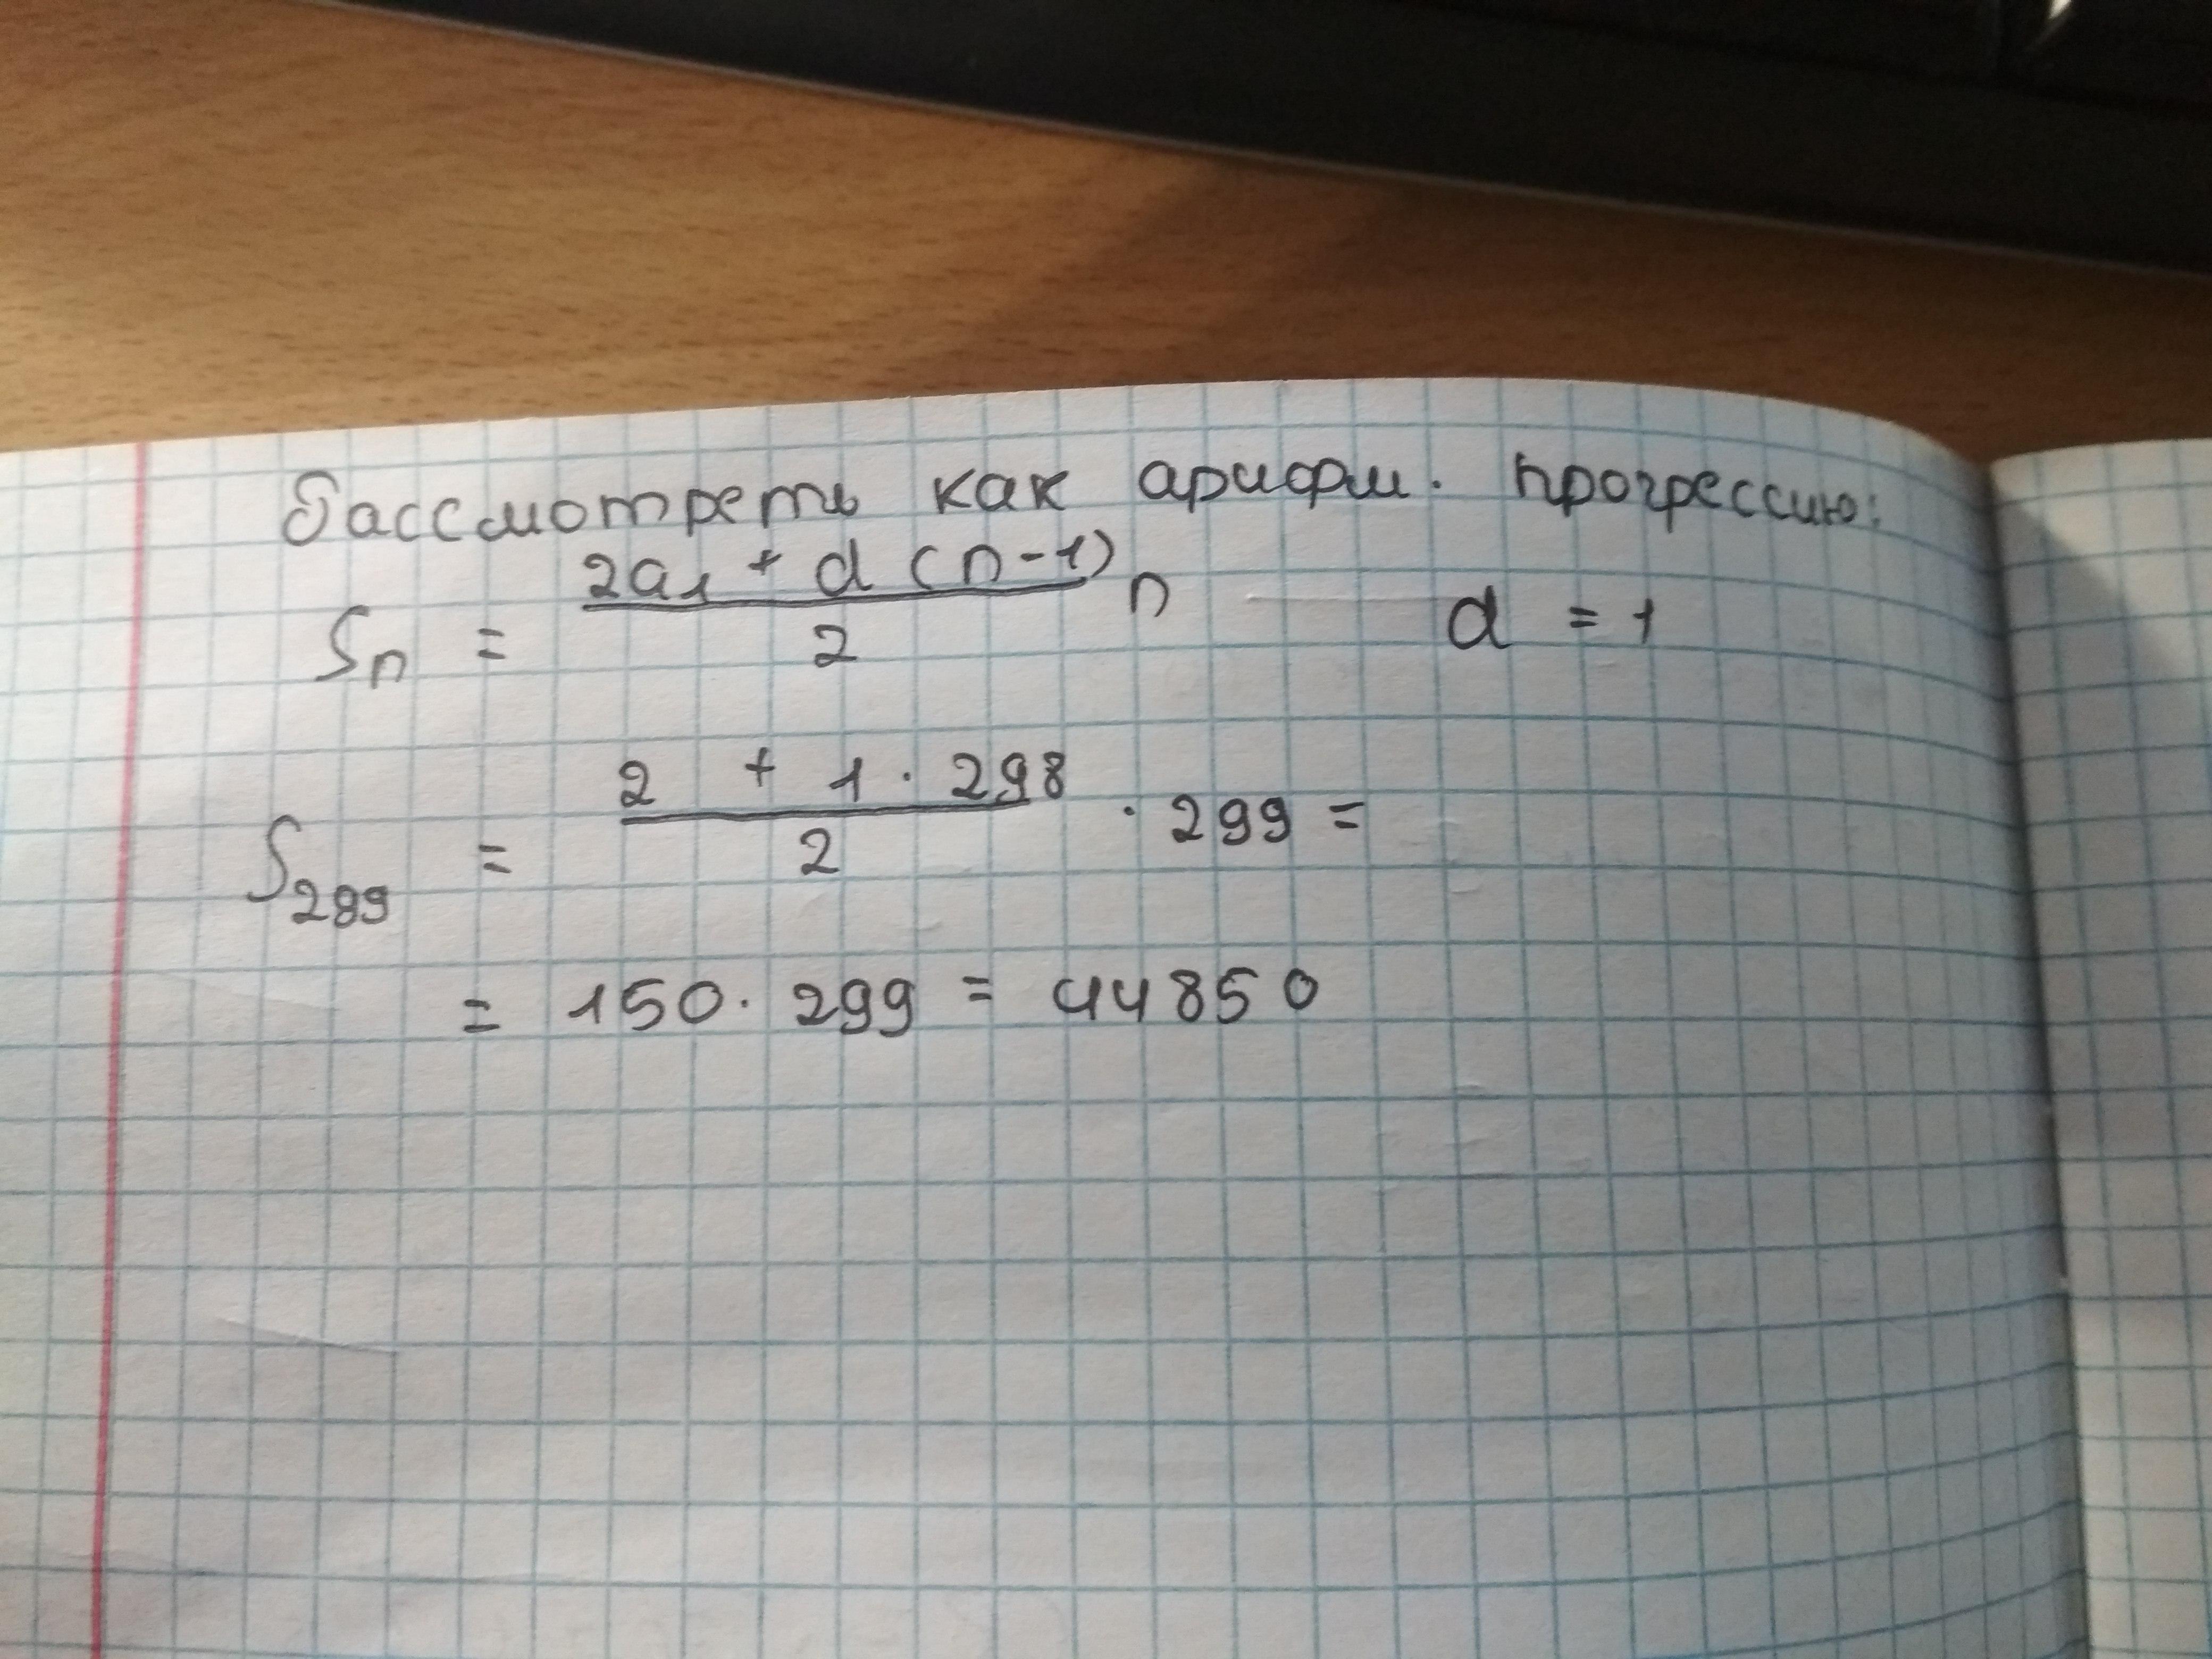 Рассмотреть как арифм. прогрессию:
Sn = (2a1 + d (n-1))/2 n d = 1
S299 = (2 + 1 · 298)/2 · 299 =
= 150 · 299 = 44850